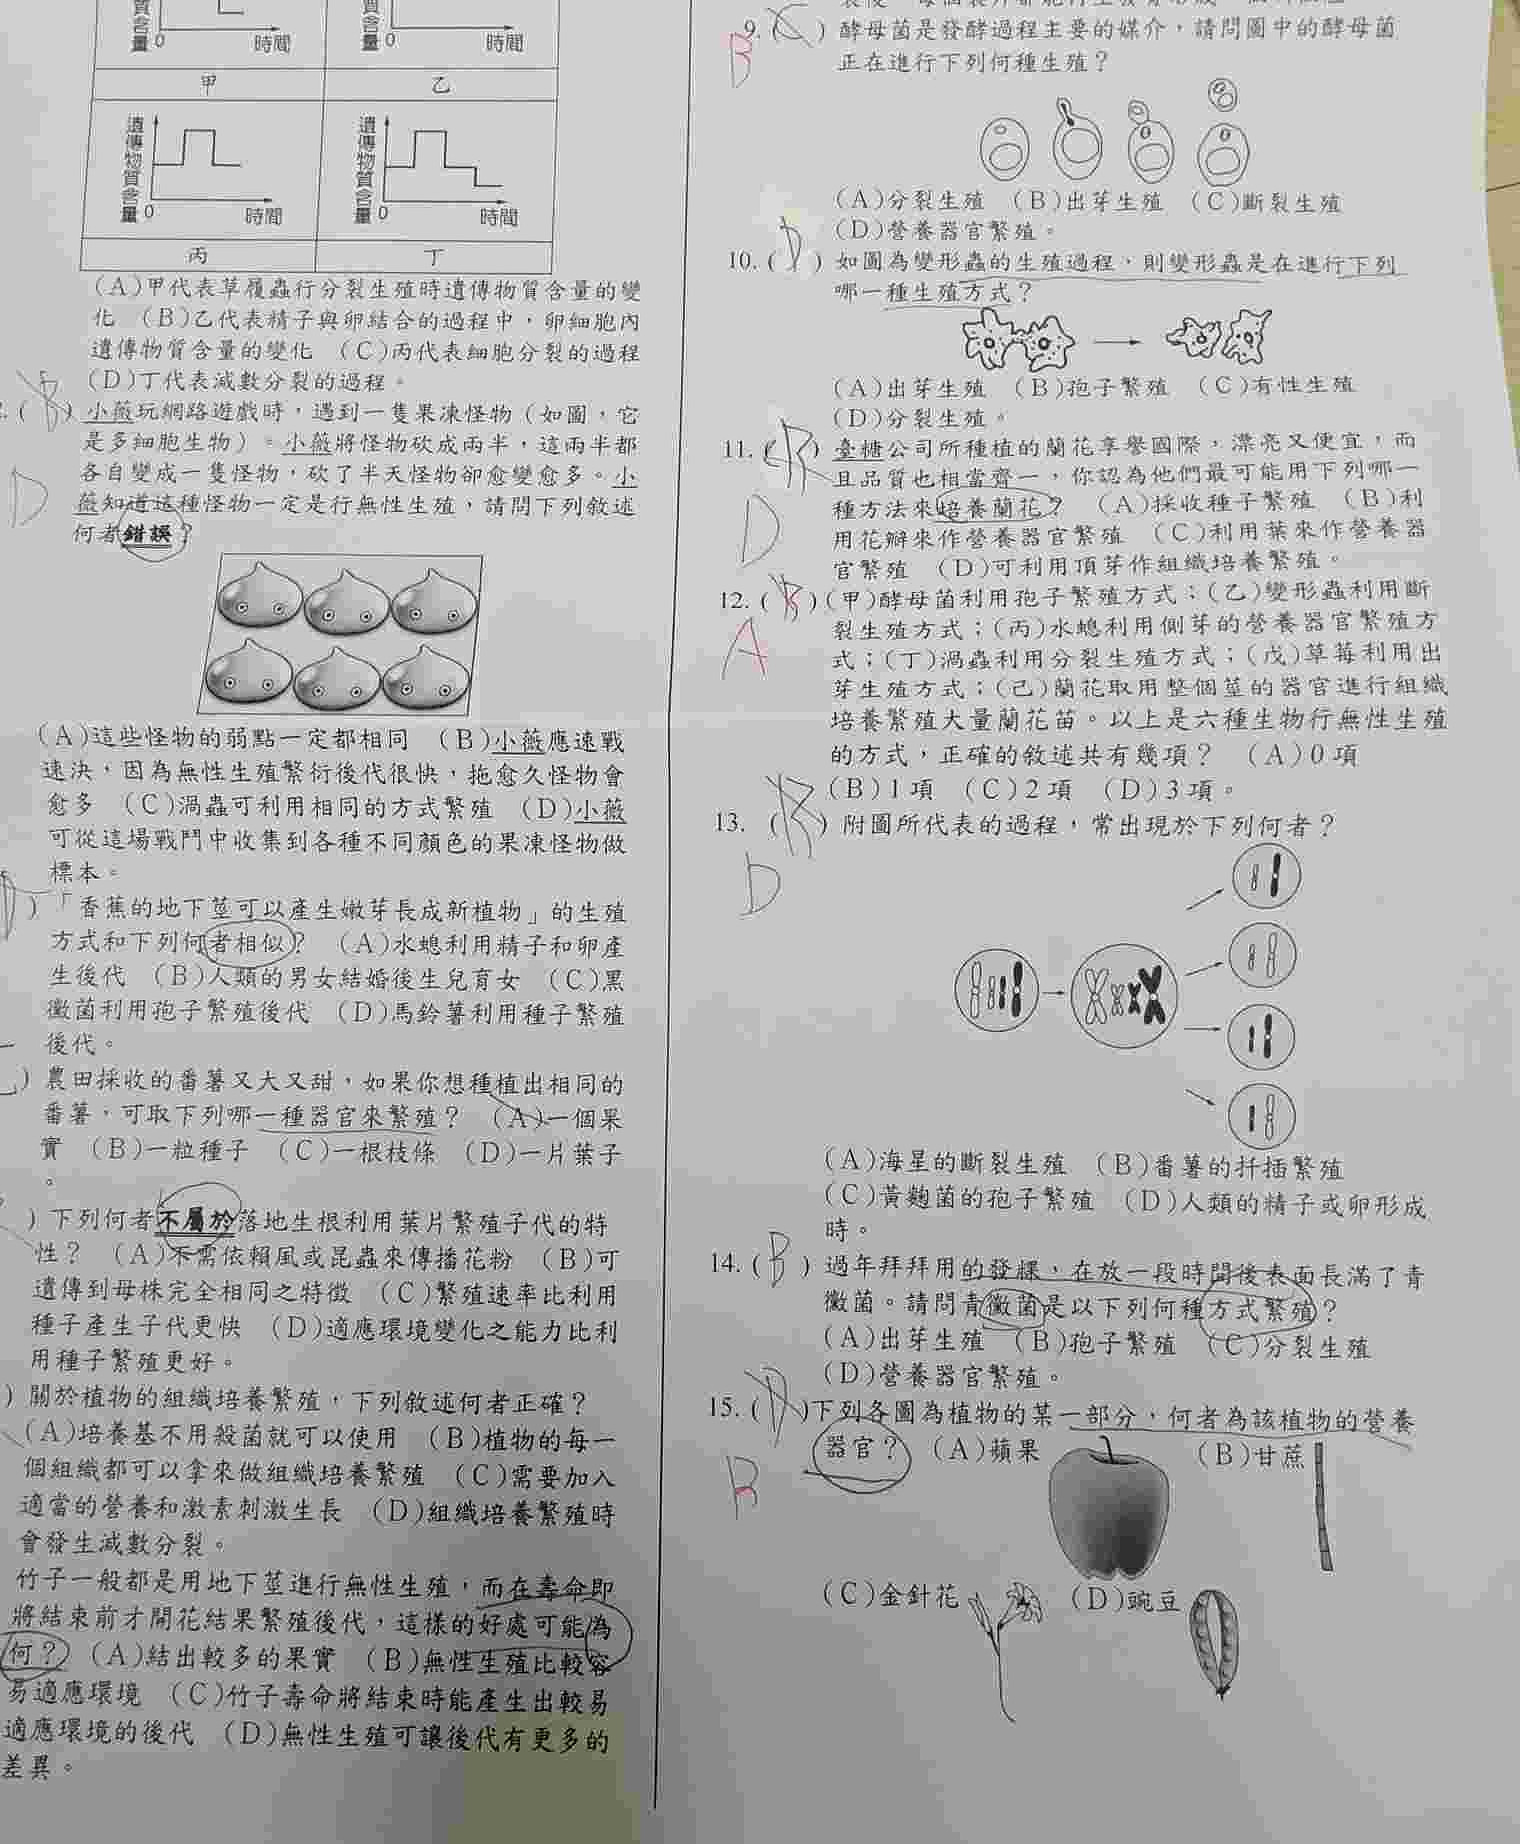 質含量
0
時間
質含量
0
時間
甲
乙
遺傳物質含量
0
時間
遺傳物質含量
0
時間
丙
丁
(A)甲代表草履蟲行分裂生殖時遺傳物質含量的變
化 (B)乙代表精子與卵結合的過程中，卵細胞內
遺傳物質含量的變化 (C)丙代表細胞分裂的過程
(D)丁代表減數分裂的過程。
( B ) 小薇玩網路遊戲時，遇到一隻果凍怪物（如圖，它
是多細胞生物）。小薇將怪物砍成兩半，這兩半都
各自變成一隻怪物，砍了半天怪物卻愈變愈多。小
D
薇知道這種怪物一定是行無性生殖，請問下列敘述
何者錯誤？
(A)這些怪物的弱點一定都相同 (B)小薇應速戰
速決，因為無性生殖繁衍後代很快，拖愈久怪物會
愈多 (C)渦蟲可利用相同的方式繁殖 (D)小薇
可從這場戰鬥中收集到各種不同顏色的果凍怪物做
標本。
) 「香蕉的地下莖可以產生嫩芽長成新植物」的生殖
方式和下列何者相似？ (A)水螅利用精子和卵產
生後代 (B)人類的男女結婚後生兒育女 (C)黑
黴菌利用孢子繁殖後代 (D)馬鈴薯利用種子繁殖
後代。
) 農田採收的番薯又大又甜，如果你想種植出相同的
番薯，可取下列哪一種器官來繁殖？ (A)一個果
實 (B)一粒種子 (C)一根枝條 (D)一片葉子
。
) 下列何者不屬於落地生根利用葉片繁殖子代的特
性？ (A)不需依賴風或昆蟲來傳播花粉 (B)可
遺傳到母株完全相同之特徵 (C)繁殖速率比利用
種子產生子代更快 (D)適應環境變化之能力比利
用種子繁殖更好。
) 關於植物的組織培養繁殖，下列敘述何者正確？
(A)培養基不用殺菌就可以使用 (B)植物的每一
個組織都可以拿來做組織培養繁殖 (C)需要加入
適當的營養和激素刺激生長 (D)組織培養繁殖時
會發生減數分裂。
竹子一般都是用地下莖進行無性生殖，而在壽命即
將結束前才開花結果繁殖後代，這樣的好處可能為
何？ (A)結出較多的果實 (B)無性生殖比較容
易適應環境 (C)竹子壽命將結束時能產生出較易
適應環境的後代 (D)無性生殖可讓後代有更多的
差異。
9. ( C ) 酵母菌是發酵過程主要的媒介，請問圖中的酵母菌
B
正在進行下列何種生殖？
(A)分裂生殖 (B)出芽生殖 (C)斷裂生殖
(D)營養器官繁殖。
10. ( D ) 如圖為變形蟲的生殖過程，則變形蟲是在進行下列
哪一種生殖方式？
(A)出芽生殖 (B)孢子繁殖 (C)有性生殖
(D)分裂生殖。
11. ( B ) 臺糖公司所種植的蘭花享譽國際，漂亮又便宜，而
且品質也相當齊一，你認為他們最可能用下列哪一
D
種方法來培養蘭花？ (A)採收種子繁殖 (B)利
用花瓣來作營養器官繁殖 (C)利用葉來作營養器
官繁殖 (D)可利用頂芽作組織培養繁殖。
12. ( B ) (甲)酵母菌利用孢子繁殖方式；(乙)變形蟲利用斷
A
裂生殖方式；(丙)水螅利用側芽的營養器官繁殖方
式；(丁)渦蟲利用分裂生殖方式；(戊)草莓利用出
芽生殖方式；(己)蘭花取用整個莖的器官進行組織
培養繁殖大量蘭花苗。以上是六種生物行無性生殖
的方式，正確的敘述共有幾項？ (A)0 項
(B)1 項 (C)2 項 (D)3 項。
13. ( B ) 附圖所代表的過程，常出現於下列何者？
D
(A)海星的斷裂生殖 (B)番薯的扦插繁殖
(C)黃麴菌的孢子繁殖 (D)人類的精子或卵形成
時。
14. ( B ) 過年拜拜用的發粿，在放一段時間後表面長滿了青
黴菌。請問青黴菌是以下列何種方式繁殖？
(A)出芽生殖 (B)孢子繁殖 (C)分裂生殖
(D)營養器官繁殖。
15. ( D ) 下列各圖為植物的某一部分，何者為該植物的營養
B
器官？ (A)蘋果 (B)甘蔗
(C)金針花 (D)豌豆